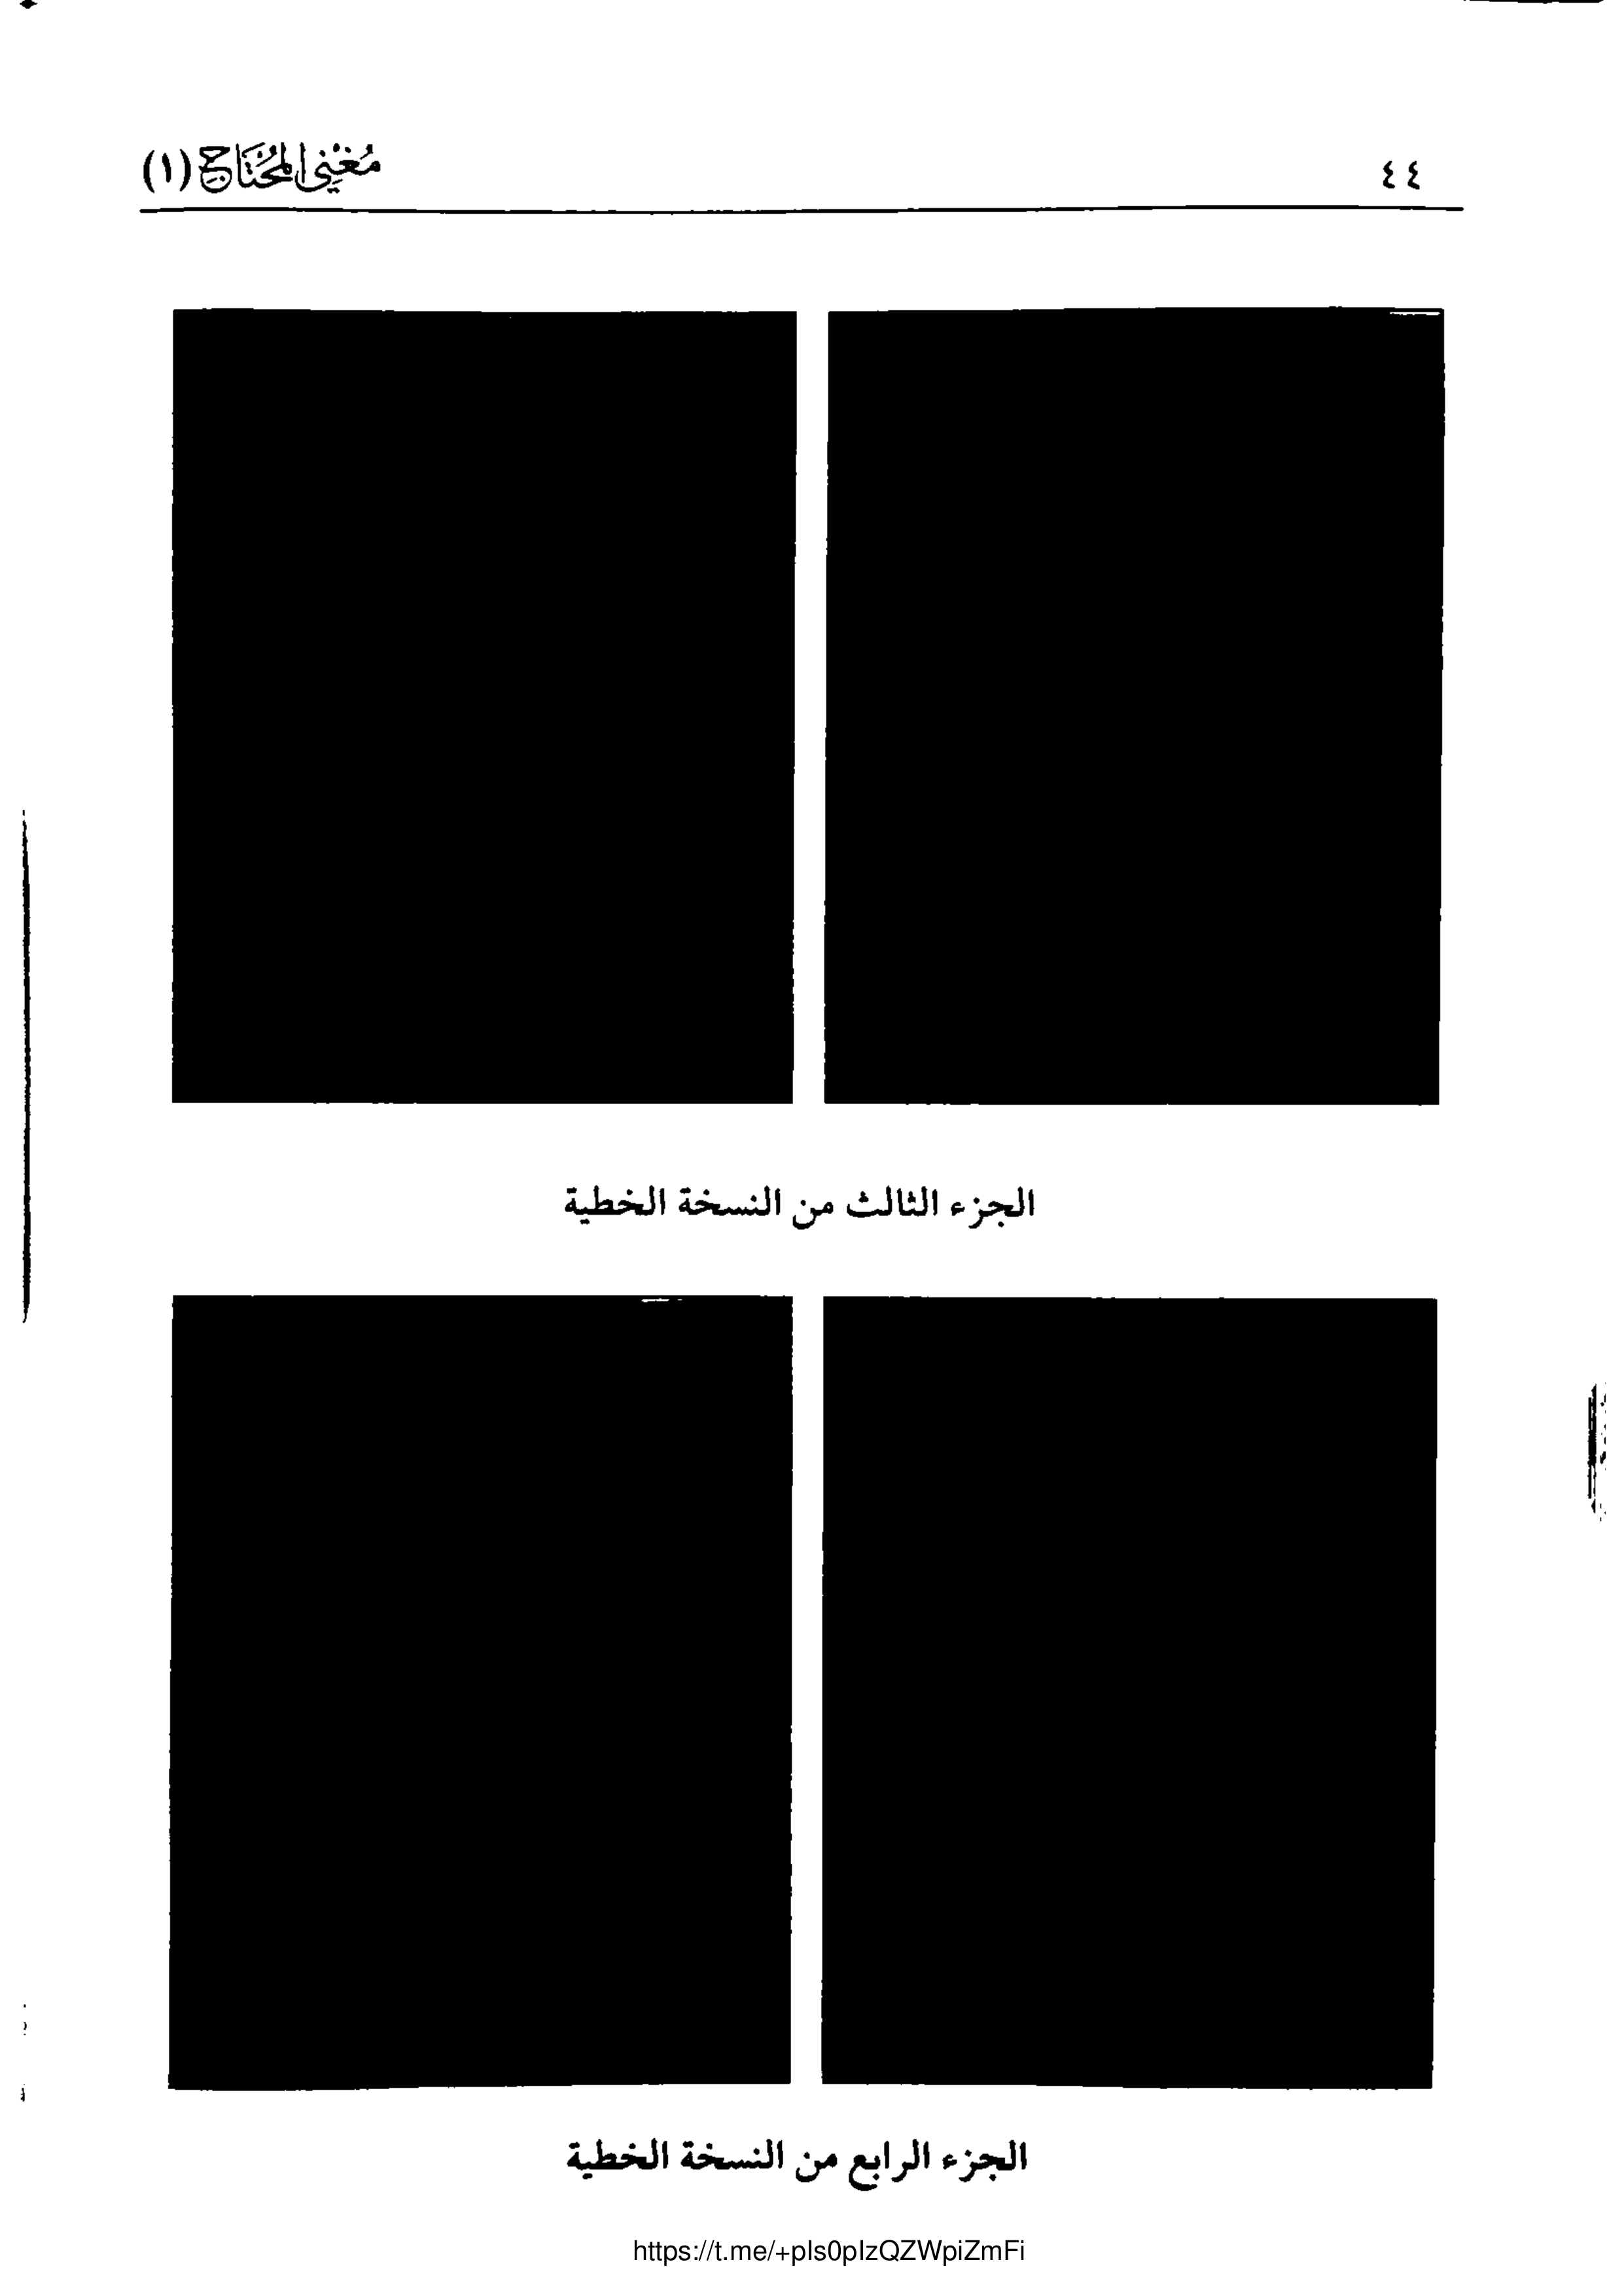 ٤٤
مُغْنِي المُحْتَاجِ (١)
الجزء الثالث من النسخة الخطية
الجزء الرابع من النسخة الخطية
https://t.me/+pIs0pIzQZWpiZmFi